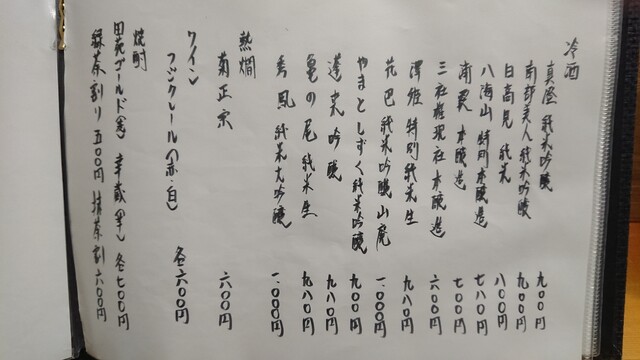 冷酒
真澄 純米吟醸 九〇〇円
南部美人 純米吟醸 九〇〇円
日高見 純米 八〇〇円
八海山 特別本醸造 七八〇円
浦霞 本醸造 七〇〇円
三社権現社 本醸造 六〇〇円
澤姫 特別純米 生 九八〇円
花巴 純米吟醸 山廃 一、〇〇〇円
やまとしずく 純米吟醸 九〇〇円
蓬莱 吟醸 九八〇円
亀の尾 純米 生 九八〇円
秀鳳 純米大吟醸 一、〇〇〇円
熱燗
菊正宗 六〇〇円
ワイン
フジクレール(赤・白) 各六〇〇円
焼酎
田苑ゴールド(麦) 幸蔵(芋) 各七〇〇円
緑茶割り 五〇〇円 抹茶割 六〇〇円